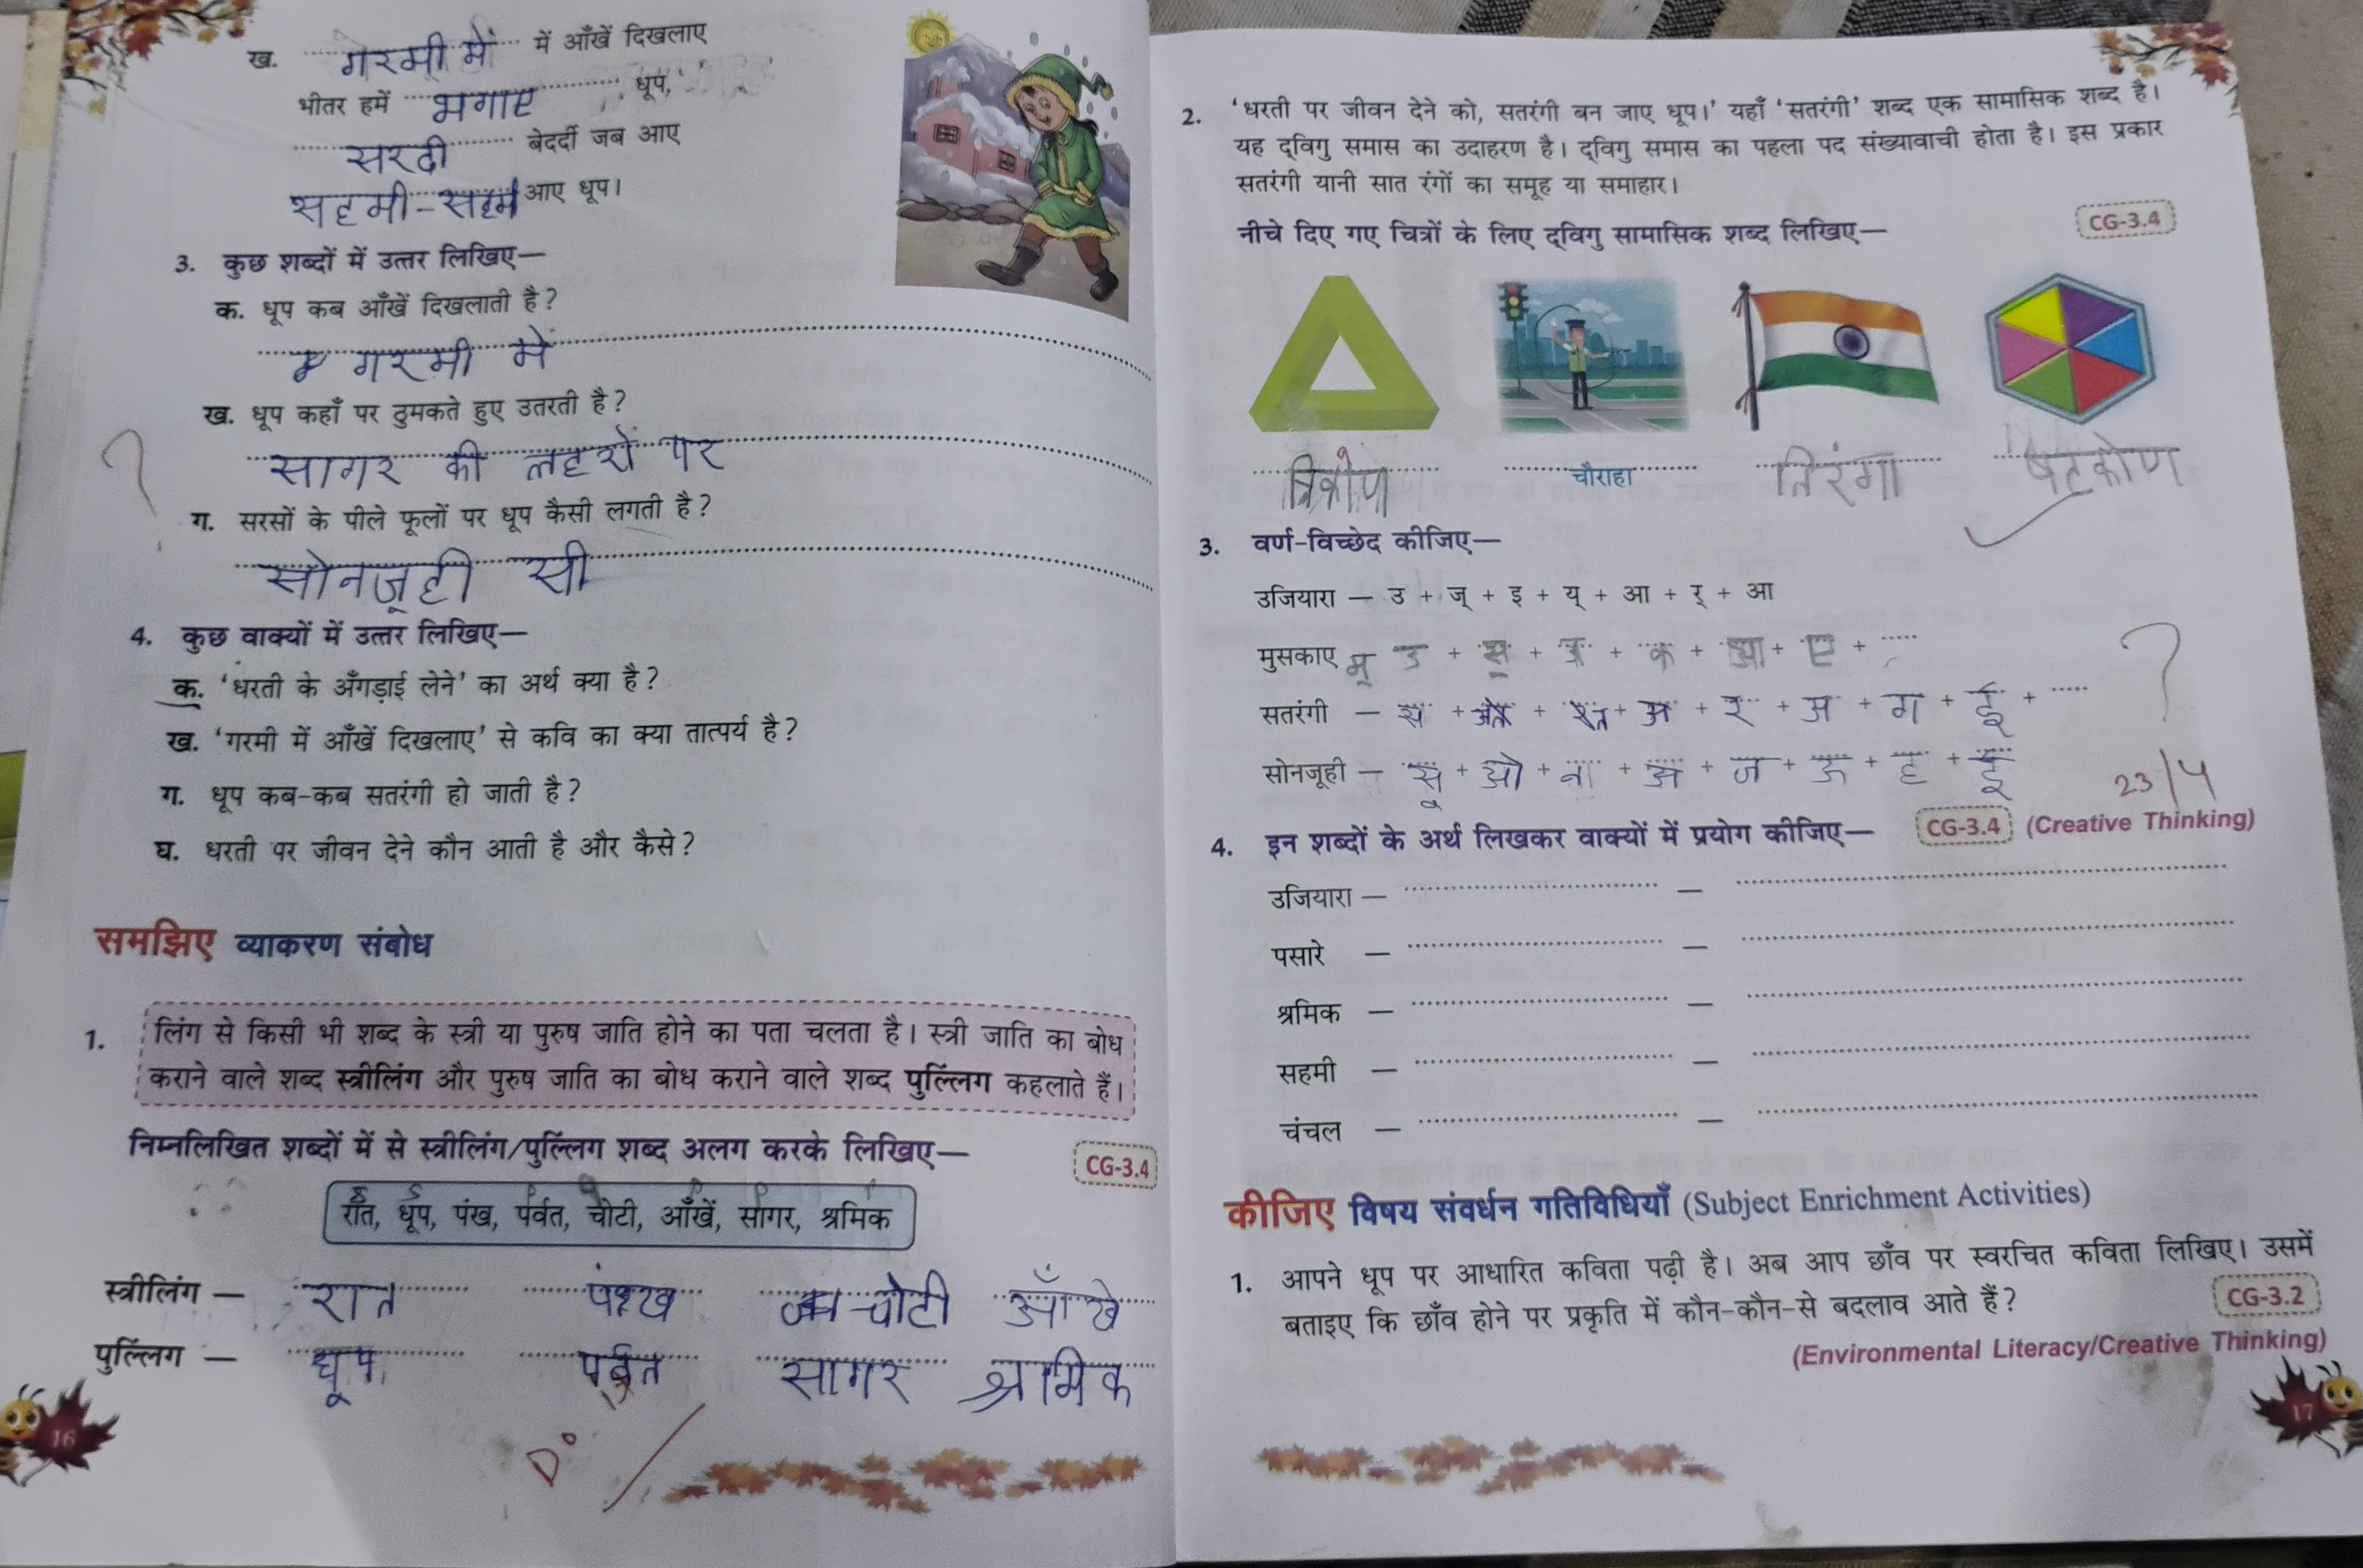 ख. गरमी में में आँखें दिखलाए
भीतर हमें भगाए धूप,
सरदी बेदर्दी जब आए
सहमी-सहमी आए धूप।
3. कुछ शब्दों में उत्तर लिखिए—
क. धूप कब आँखें दिखलाती है?
गरमी में
ख. धूप कहाँ पर ठुमकते हुए उतरती है?
सागर की लहरों पर
ग. सरसों के पीले फूलों पर धूप कैसी लगती है?
सोनजूही सी
4. कुछ वाक्यों में उत्तर लिखिए—
क. 'धरती के अँगड़ाई लेने' का अर्थ क्या है?
ख. 'गरमी में आँखें दिखलाए' से कवि का क्या तात्पर्य है?
ग. धूप कब-कब सतरंगी हो जाती है?
घ. धरती पर जीवन देने कौन आती है और कैसे?
समझिए व्याकरण संबोध
1. लिंग से किसी भी शब्द के स्त्री या पुरुष जाति होने का पता चलता है। स्त्री जाति का बोध
कराने वाले शब्द स्त्रीलिंग और पुरुष जाति का बोध कराने वाले शब्द पुल्लिंग कहलाते हैं।
निम्नलिखित शब्दों में से स्त्रीलिंग/पुल्लिंग शब्द अलग करके लिखिए—
CG-3.4
रात, धूप, पंख, पर्वत, चोटी, आँखें, सागर, श्रमिक
स्त्रीलिंग — रात पंख चोटी आँखे
पुल्लिंग — धूप पर्वत सागर श्रमिक
16
2. 'धरती पर जीवन देने को, सतरंगी बन जाए धूप।' यहाँ 'सतरंगी' शब्द एक सामासिक शब्द है।
यह द्विगु समास का उदाहरण है। द्विगु समास का पहला पद संख्यावाची होता है। इस प्रकार
सतरंगी यानी सात रंगों का समूह या समाहार।
नीचे दिए गए चित्रों के लिए द्विगु सामासिक शब्द लिखिए—
CG-3.4
त्रिकोण चौराहा तिरंगा षट्कोण
3. वर्ण-विच्छेद कीजिए—
उजियारा — उ + ज् + इ + य् + आ + र् + आ
मुसकाए म् उ + स + अ + क + आ + ए +
सतरंगी — स + + + अ + र + अ + ग + ई +
सोनजूही — + ओ + न + अ + ज + ऊ + ह + ई
23/4
4. इन शब्दों के अर्थ लिखकर वाक्यों में प्रयोग कीजिए—
CG-3.4 (Creative Thinking)
उजियारा — —
पसारे — —
श्रमिक — —
सहमी — —
चंचल — —
कीजिए विषय संवर्धन गतिविधियाँ (Subject Enrichment Activities)
1. आपने धूप पर आधारित कविता पढ़ी है। अब आप छाँव पर स्वरचित कविता लिखिए। उसमें
बताइए कि छाँव होने पर प्रकृति में कौन-कौन-से बदलाव आते हैं?
CG-3.2
(Environmental Literacy/Creative Thinking)
17